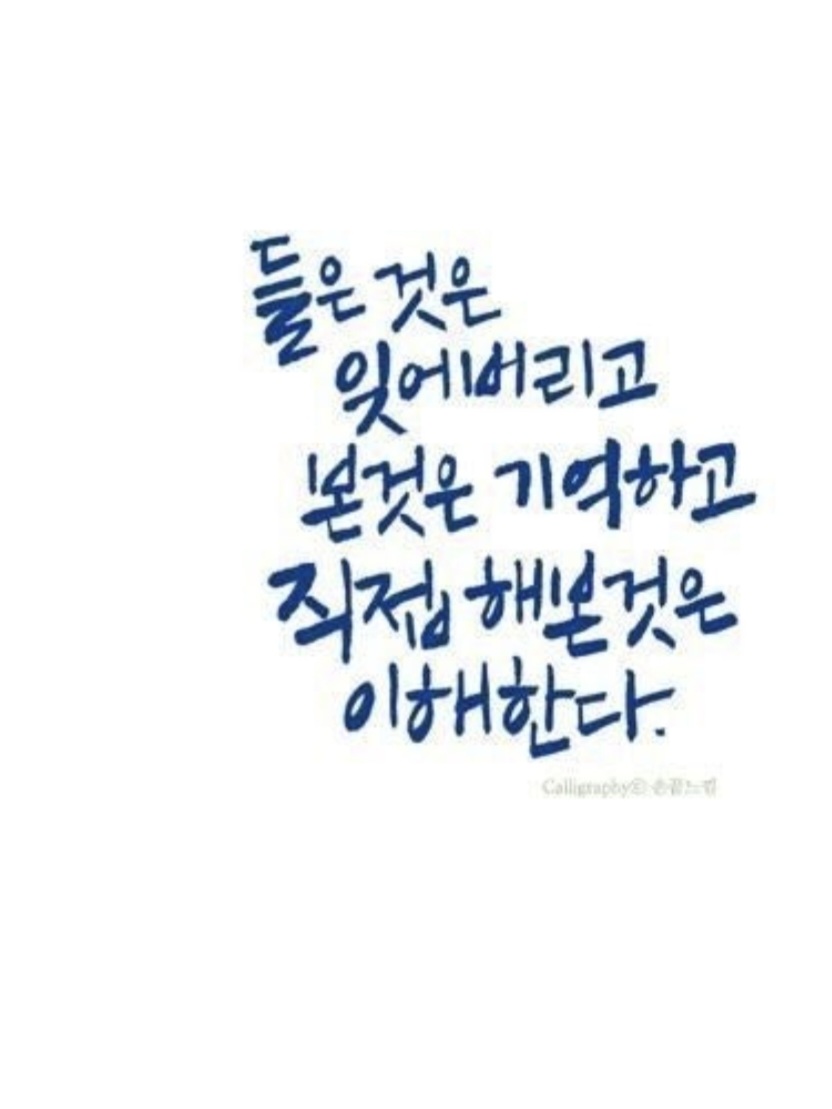 들은 것은
잊에버리고
본것은 기억하고
직접 해본것은
이해한다.
Calligraphyⓒ 손끝느낌